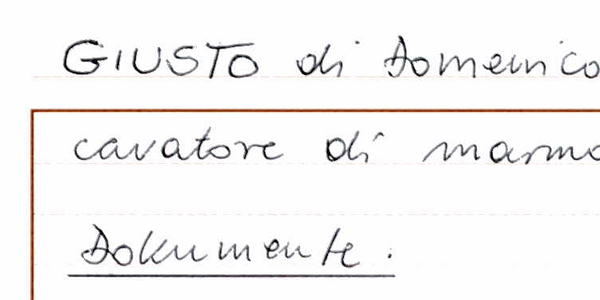 GIUSTO di Domenico
cavatore di marmo
Dokumente.